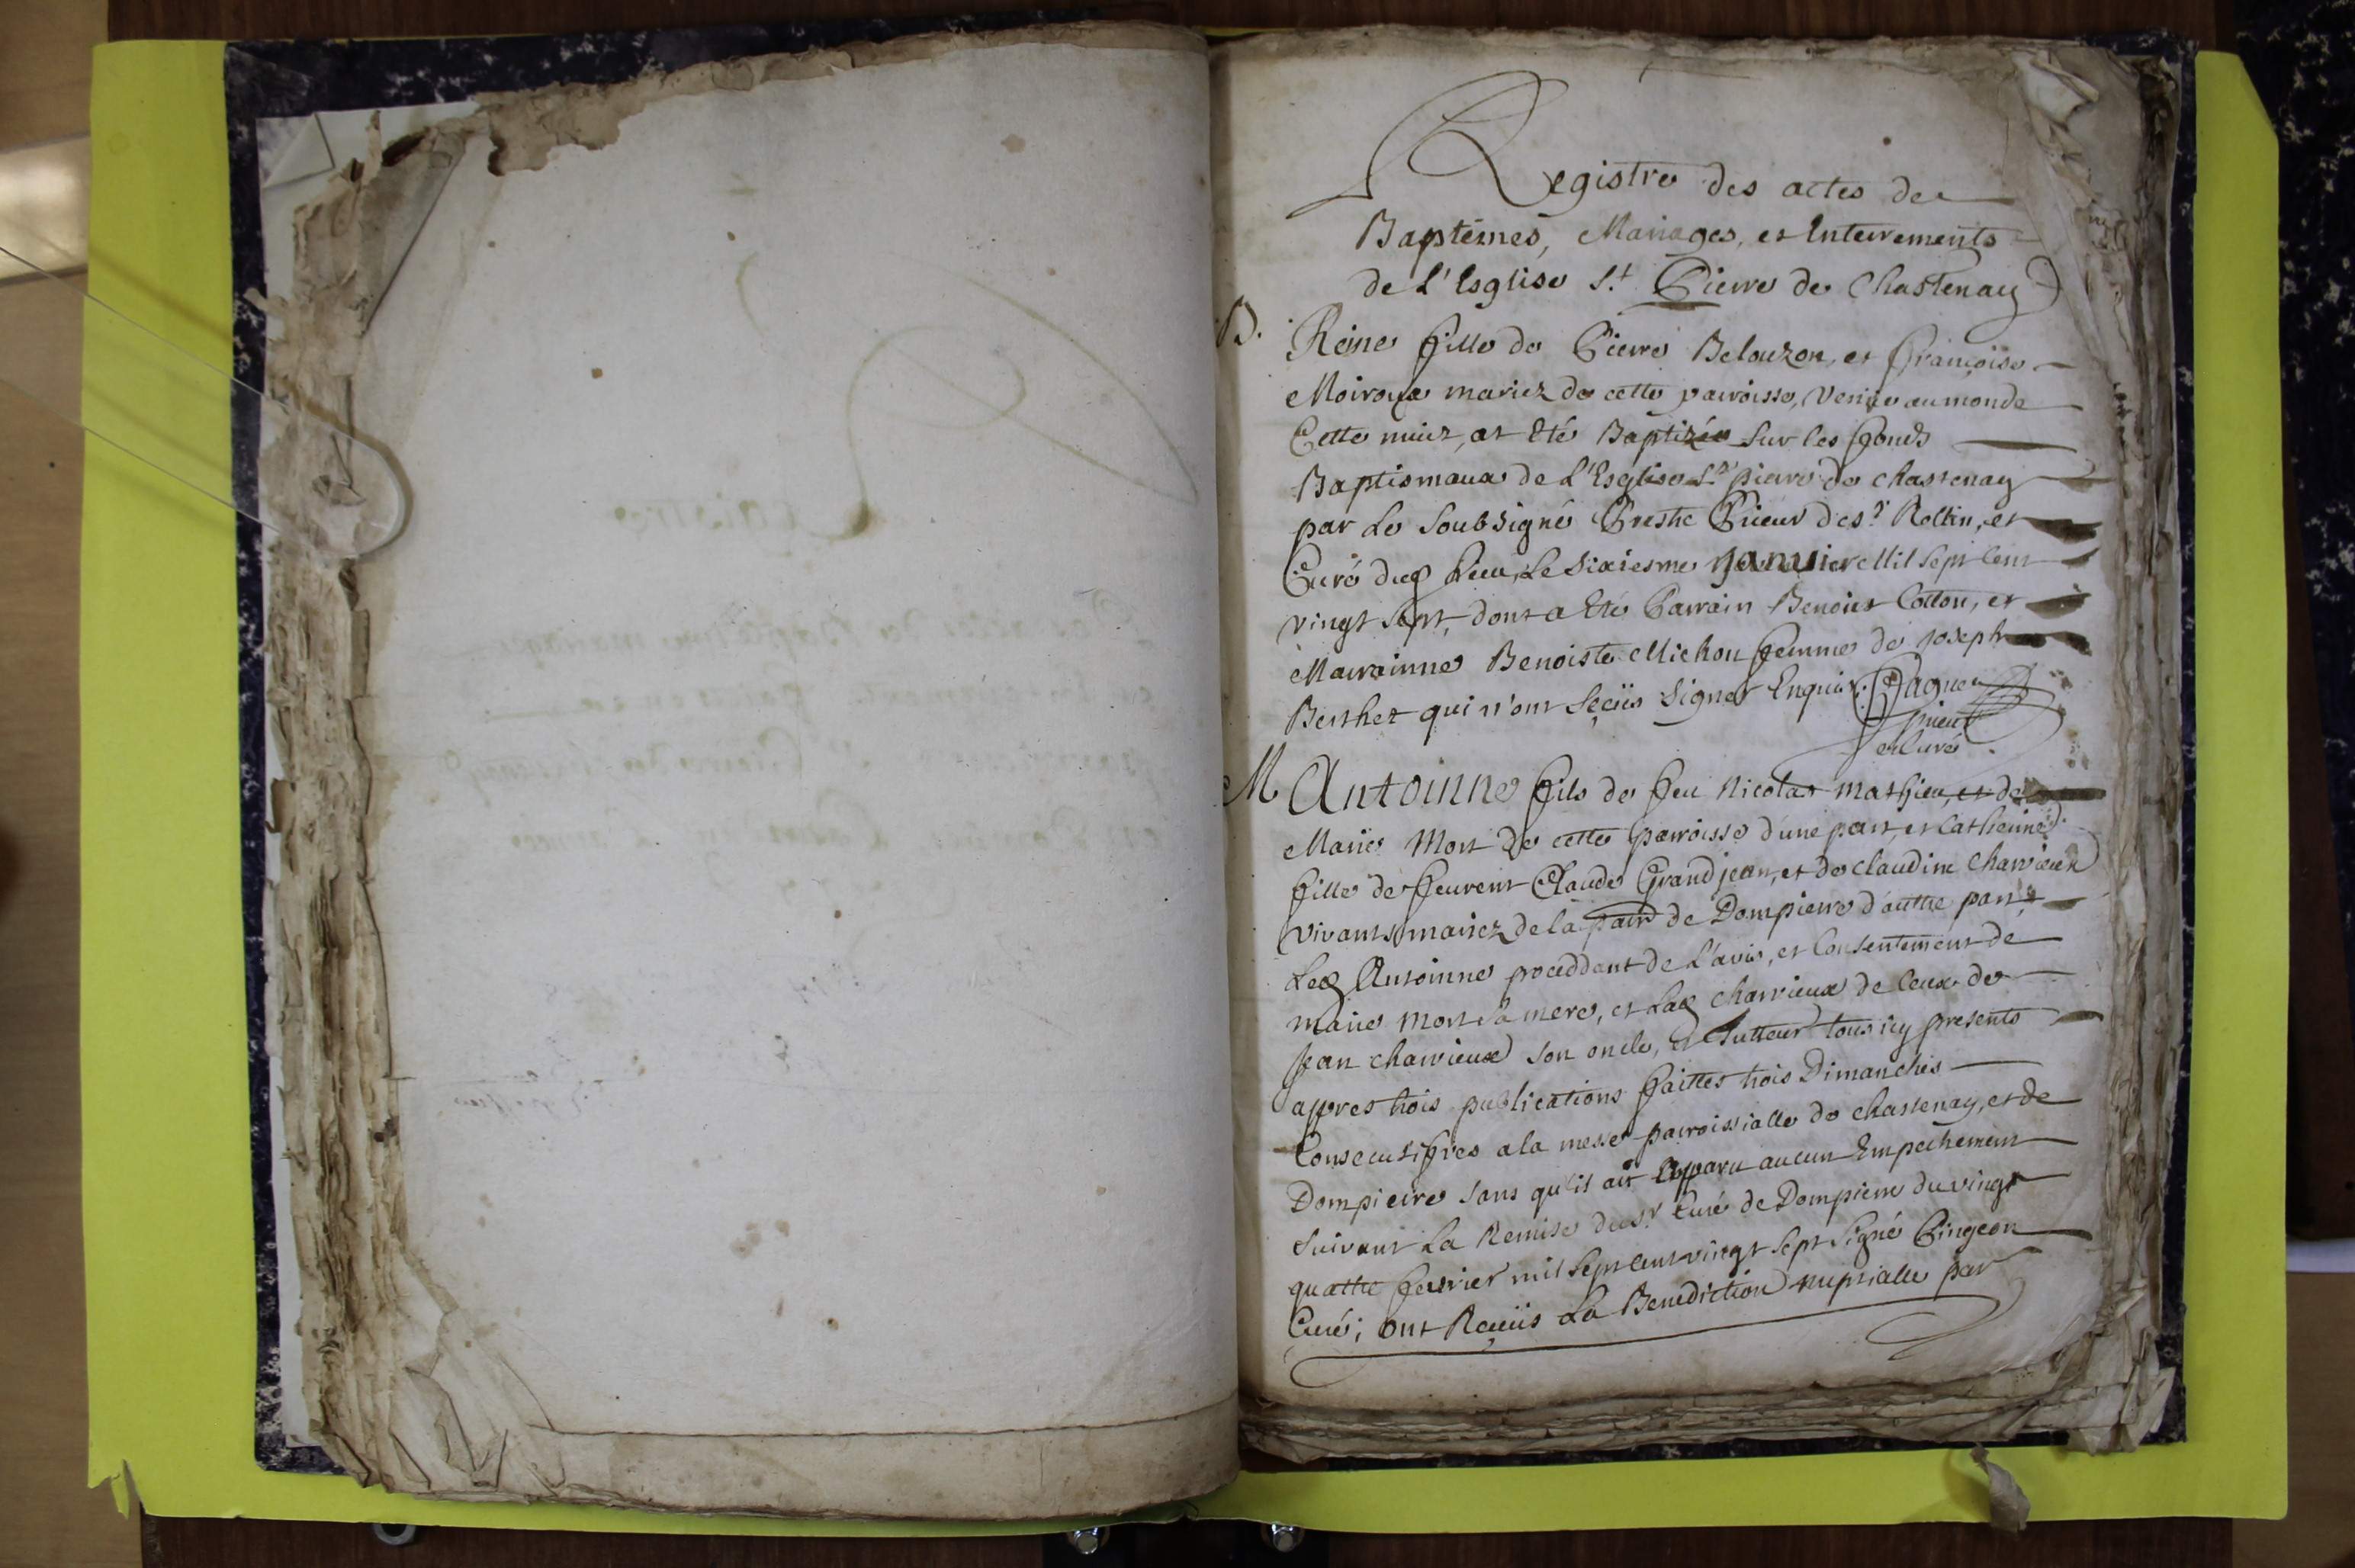 Registre des actes de
Baptêmes, Mariages, et Enterrements
de L'Esglise S.t Pierre de Chastenay
B.
Reine fille de Pierre Belouzon, et françoise
Moiroux mariez de cette parroisse, Venüe au monde
Cette nuict, at Eté Baptizée sur les fonds
Baptismaux de L'Esglise S.t pierre de chastenay
par Le Soubsigné Prestre Prieur de S.t Roltin, et
Curé dud Lieu, Le Sixiesme Januier Mil Sept Cent
vingt Sept, dont a Eté Parrain Benoist Cotton, et
Marrainne Benoiste Michon femme de Joseph
Berthet qui n'ont Sçeüs Signer Enquis.
prieur
et Curé
M
Antoinne fils de feu Nicolas Mathieu, et de
Marie Mort de cette parroisse d'une part, et Catherine
fille de feurent Claude Grandjean, et de Claudine Charrieux
vivants mariez de la parr de Dompierre d'autre part
Led Antoinne procedant de L'avis, et Consentement de
marie Mort Sa mere, et Lad Charrieux de Ceux de
Jean charrieux son oncle, et Tutteur tous icy presents
appres trois publications faittes trois Dimanches
Consecutifves a la messe parroissialle de chastenay, et de
Dompierre sans qu'il ait apparu aucun Empechement
Suivant La Remise du S.r Curé de Dompierre du vingt
quattre fevrier mil Sept Cent vingt Sept Signé Pingeon
Curé; ont Reçeüs La Benediction nuptialle par